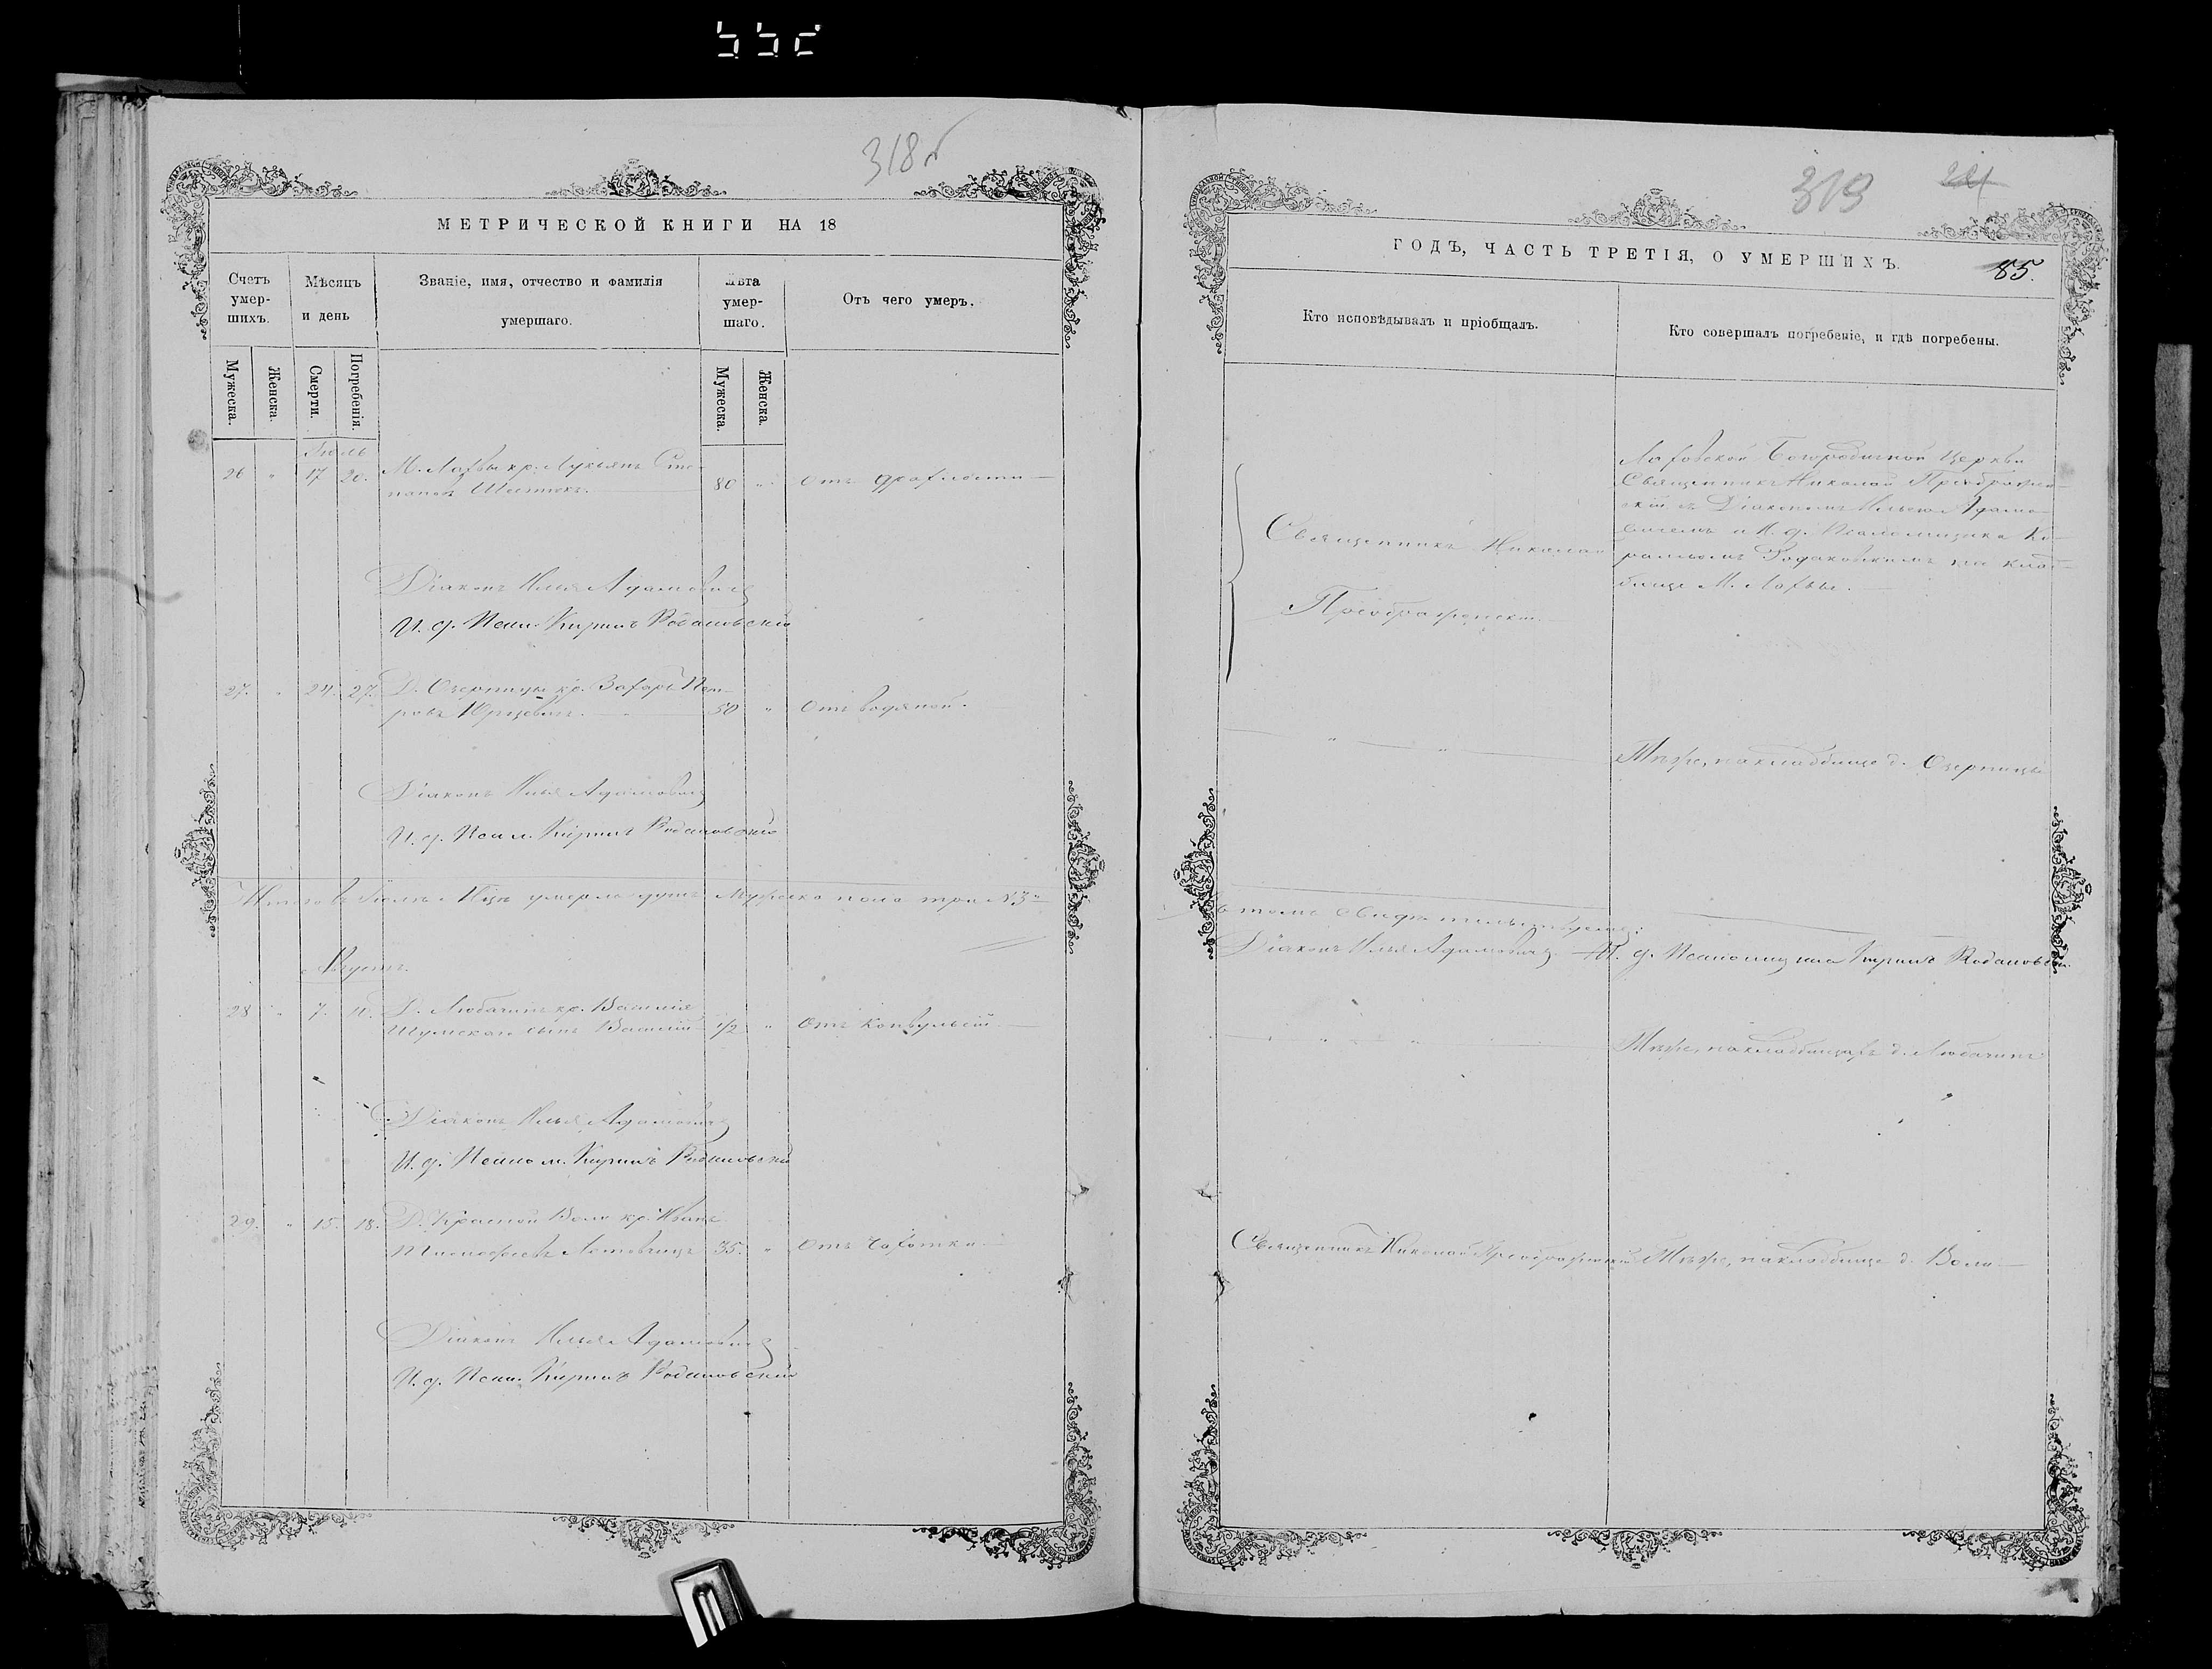 318
МЕТРИЧЕСКОЙ КНИГИ НА 18
Счетъ умер-шихъ.
Мѣсяцъ и день
Званіе, имя, отчество и фамилія умершаго.
Лѣта умер-шаго.
Отъ чего умеръ.
Мужеска.
Женска.
Смерти.
Погребенія.
Мужеска.
Женска.
Іюль
26 " 17 20. М. Лахвы кр. Лукьянъ Сте-
пановъ 80 " Отъ дряхлости
Діаконъ Илья Адамовичъ
И. д. Псал. Кирилъ Родаковскій
27. " 24. 27. Д. Озерницы кр. Захаръ Пет-
ровъ Юрцевичъ. 50 " Отъ водяной.
Діаконъ Илья Адамовичъ
И. д. Псал. Кирилъ Родаковскій
Итого въ Іюлѣ М-цѣ умерло душъ Мужеска пола три №3
Августъ.
28 " 7. 10. Д. Любачинъ кр. Василія
Шумскаго сынъ Василій 1/2 " Отъ конвульсій.
Діаконъ Илья Адамовичъ
И. д. Псалом. Кирилъ Родаковскій
29. " 15. 18. Д. Красной Воли кр. Иванъ
35. " Отъ Чахотки
Діаконъ Илья Адамовичъ
И. д. Псал. Кирилъ Родаковскій
319
ГОДЪ, ЧАСТЬ ТРЕТІЯ, О УМЕРШИХЪ.
85.
Кто исповѣдывалъ и пріобщалъ.
Кто совершалъ погребеніе, и гдѣ погребены.
Священникъ Николай
Преображенскій.
Лаховской Богородичной Церкви
Священникъ Николай Преображен-
скій съ Діакономъ Ильею Адамо-
вичемъ и И. д. Псаломщика Ки-
рилломъ Родаковскимъ на клад-
бище М. Лахвы.
" " Тѣмъ же, на кладбище д. Озерницы
въ томъ свидѣтельствуемъ:
Діаконъ Илья Адамовичъ. И. д. Псаломщика Кирилъ Родаковскій
" " Тѣмъ же, на кладбищахъ д. Любачинъ
Священникъ Николай Преображенскій Тѣмъ же, на кладбище д. Воли